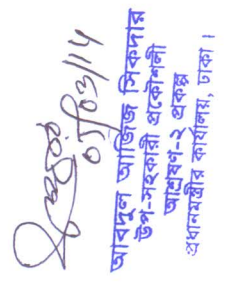 ০৯/০৩/১৫
আবদুল আজিজ সিকদার
উপ-সহকারী প্রকৌশলী
আশ্রয়ণ-২ প্রকল্প
প্রধানমন্ত্রীর কার্যালয়, ঢাকা।